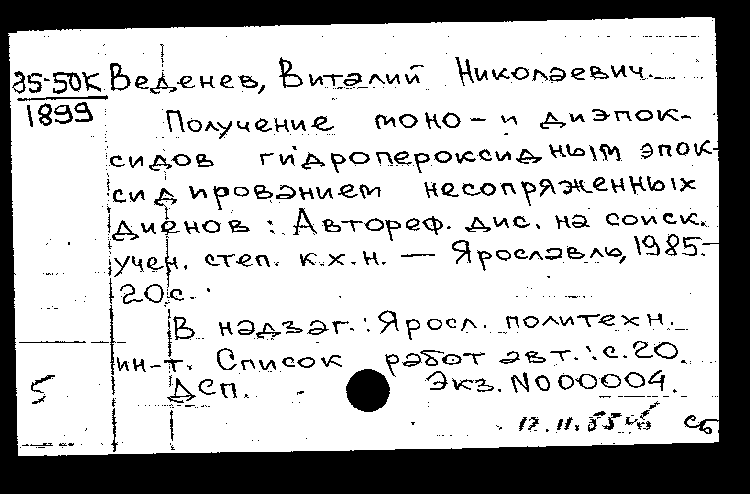 85-50К Веденев, Виталий Николаевич.
1899
Получение моно- и диэпок-
сидов гидропероксидным эпок-
сидированием несопряженных
диенов : Автореф. дис. на соиск.
учен. степ. к.х.н. — Ярославль, 1985.-
20с.
В надзаг.: Яросл. политехн.
ин-т. Список работ авт.: с.20.
5 ДСП. Экз. N000004.
12.11.85 Сб.